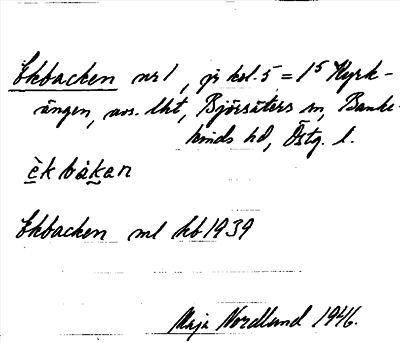 Ekbacken nr 1, jr kol. 5 = 1⁵ Kyrk-
ängen, avs. lht, Björsäters sn, Banke-
kinds hd, Östg. l.
èkbákan
Ekbacken ml kb 1939
Maja Nordlund 1946.